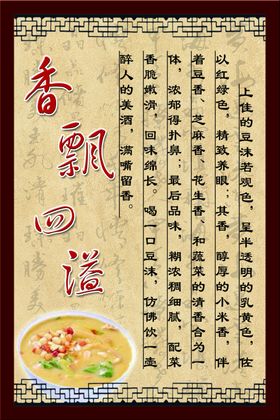 香飘四溢
上佳的豆沫若观色，呈半透明的乳黄色，佐
以红绿色，精致养眼；其香，醇厚的小米香，伴
着豆香、芝麻香、花生香、和蔬菜的清香合为一
体，浓郁得扑鼻；最后品味，糊浓稠细腻，配菜
香脆嫩滑，回味绵长。喝一口豆沫，仿佛饮一壶
醉人的美酒，满嘴留香。